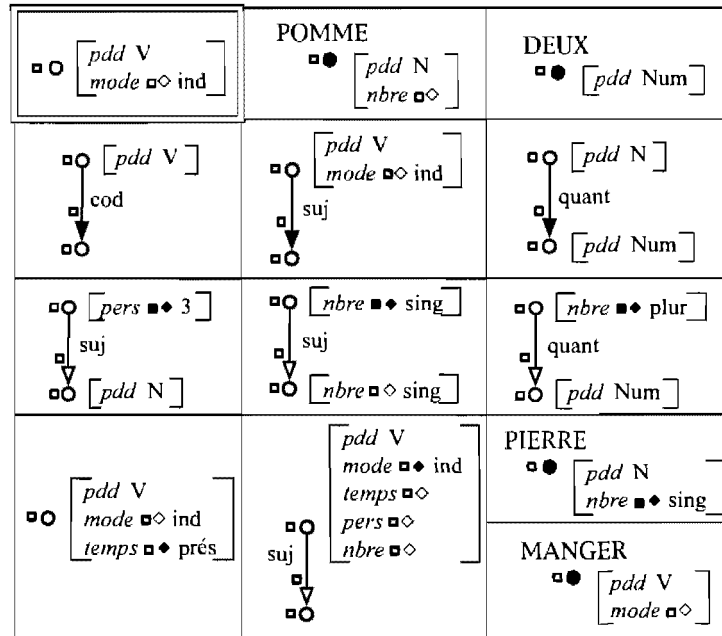 pdd V
mode ◘◇ ind
POMME
pdd N
nbre ◘◇
DEUX
pdd Num
pdd V
cod
pdd V
mode ◘◇ ind
suj
pdd N
quant
pdd Num
pers ■◆ 3
suj
pdd N
nbre ■◆ sing
suj
nbre ◘◇ sing
nbre ■◆ plur
quant
pdd Num
pdd V
mode ◘◇ ind
temps ◘◆ prés
pdd V
mode ◘◆ ind
temps ◘◇
pers ◘◇
nbre ◘◇
suj
PIERRE
pdd N
nbre ■◆ sing
MANGER
pdd V
mode ◘◇